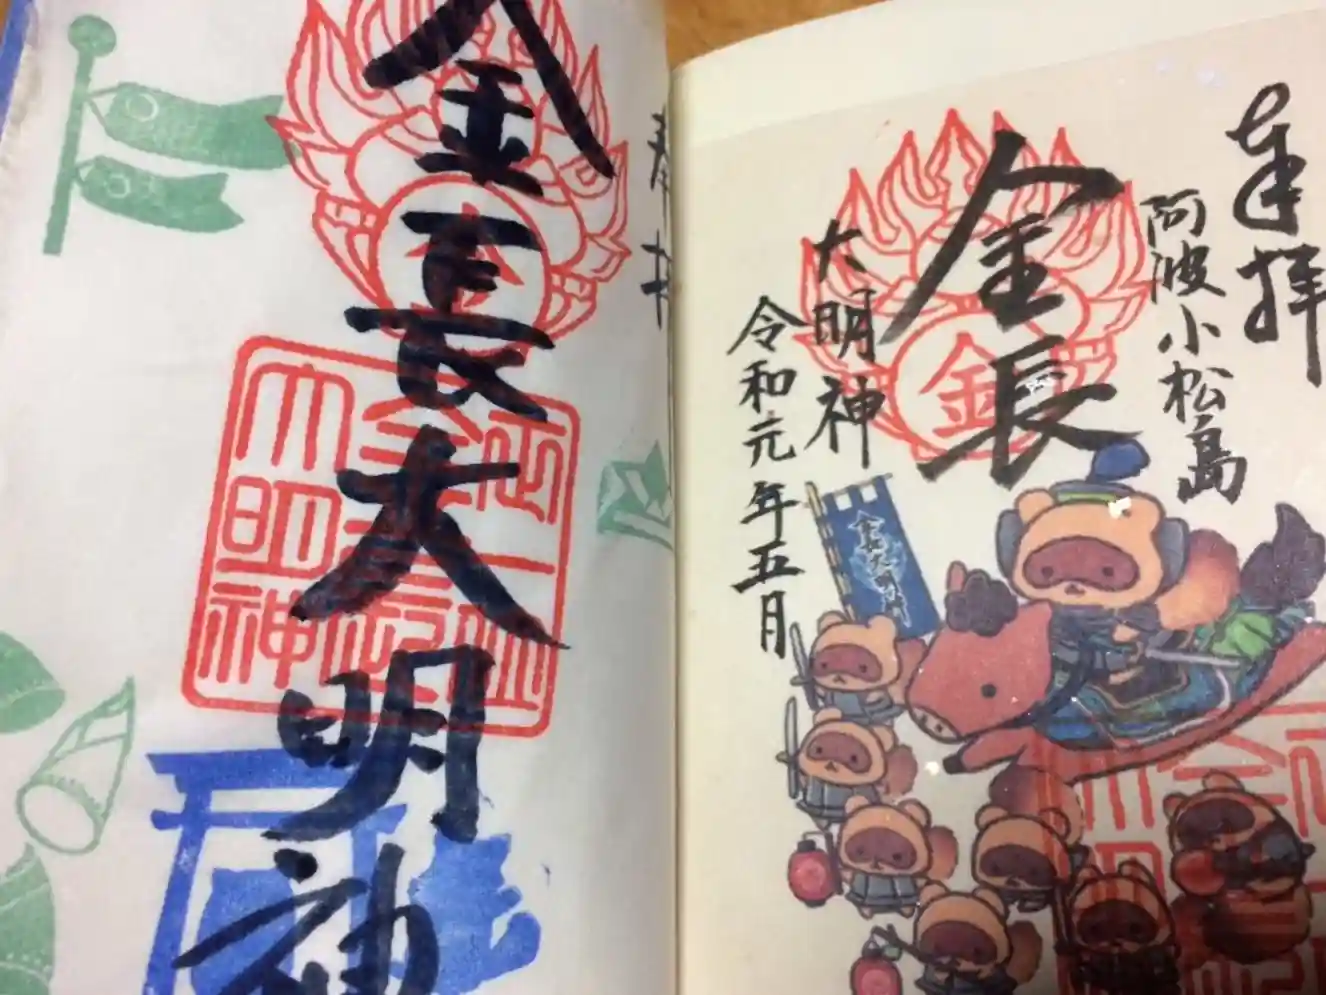 奉拝
阿波小松島
金長
大明神
令和元年五月
金
金長大明神
奉拝
金長大明神